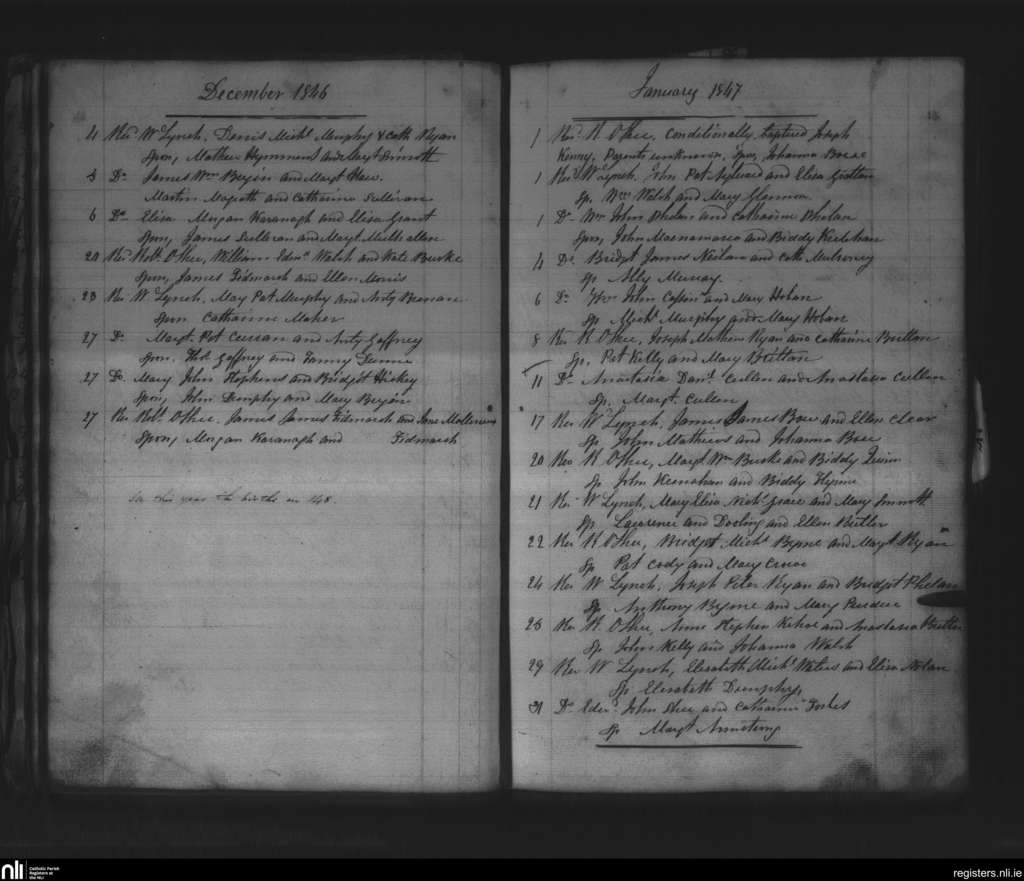 December 1846
4 Rev. Wm Lynch. Denis Michl Murphy & Cath Ryan
Spon, Mathew Hymmens and Margt Sinnott
4 Do James Wm Bergin and Margt Shee.
Martin Majsott and Catharine Sullivan
6 Do Elisa Morgan Kavanagh and Elisa Grant
Spon, James Sullivan and Margt Mulhallen
20 Rev Robt OShee, William Edwd Walsh and Kate Burke
Spon, James Tidmarsh and Ellen Morris
23 Rev W Lynch. May Pat Murphy and Anty Brenan
Spon Catharine Maher
27 Do Margt. Pat Curran and Anty Gaffney
Spon. Thos Gaffney and Fanny Dunne
27 Do Mary John Hopkins and Bridget Hickey
Spon, John Dunphy and Mary Bergin
27 Rev Robt OShee. James James Tidmarsh and Jane
Spon, Morgan Kavanagh and Tidmarsh
In this year the births are 148.
January 1847
1 Rev. R OShee, Conditionally baptized Joseph
Kenny, Parents unknown, Spon, Johanna Bowe
1 Rev. W Lynch. John Pat Aylward and Elisa Grattan
Sp. Wm Walsh and Mary Glennon
1 Do Wm John Phelan and Catharine Phelan
Spon, John Macnamara and Biddy Keelahan
4 Do Bridgt James Neilan and Cath Mulroney
Sp Ally Murray.
6 Do John and Mary Hoban
Sp Michl Murphy and Mary Hoban
8 Rev R OShee, Joseph Mathew Ryan and Catharine Britton
Sp, Pat Kelly and Mary Britton
11 Do Anastasia Danl Cullen and Anastasia Cullen
Sp. Margt. Cullen
17 Rev W Lynch, James James Bowe and Ellen Clear
Sp John Mathews and Johanna Bowe
20 Rev R OShee, Margt Wm Burke and Biddy Quinn
Sp John Keenahan and Biddy Flynne
21 Rev W Lynch, Mary Elisa Nichs Grace and Mary Sinnott
Sp Lawrence and Dooling and Ellen Butler
22 Rev R OShee, Bridget Michl Byrne and Margt Ryan
Sp Pat Cody and Mary
24 Rev W Lynch, Joseph Peter Ryan and Bridget Phelan
Sp Anthony Byrne and Mary Purdue
25 Rev R OShee, Anne Stephen Kehoe and Anastasia Butler
Sp John Kelly and Johanna Walsh
29 Rev W Lynch, Elisabeth Michl Waters and Elisa Nolan
Sp Elisabeth Dunphy,
31 Do Edwd John Shee and Catharine Forbes
Sp Margt Armstrong
nli Catholic Parish Registers at the NLI
registers.nli.ie